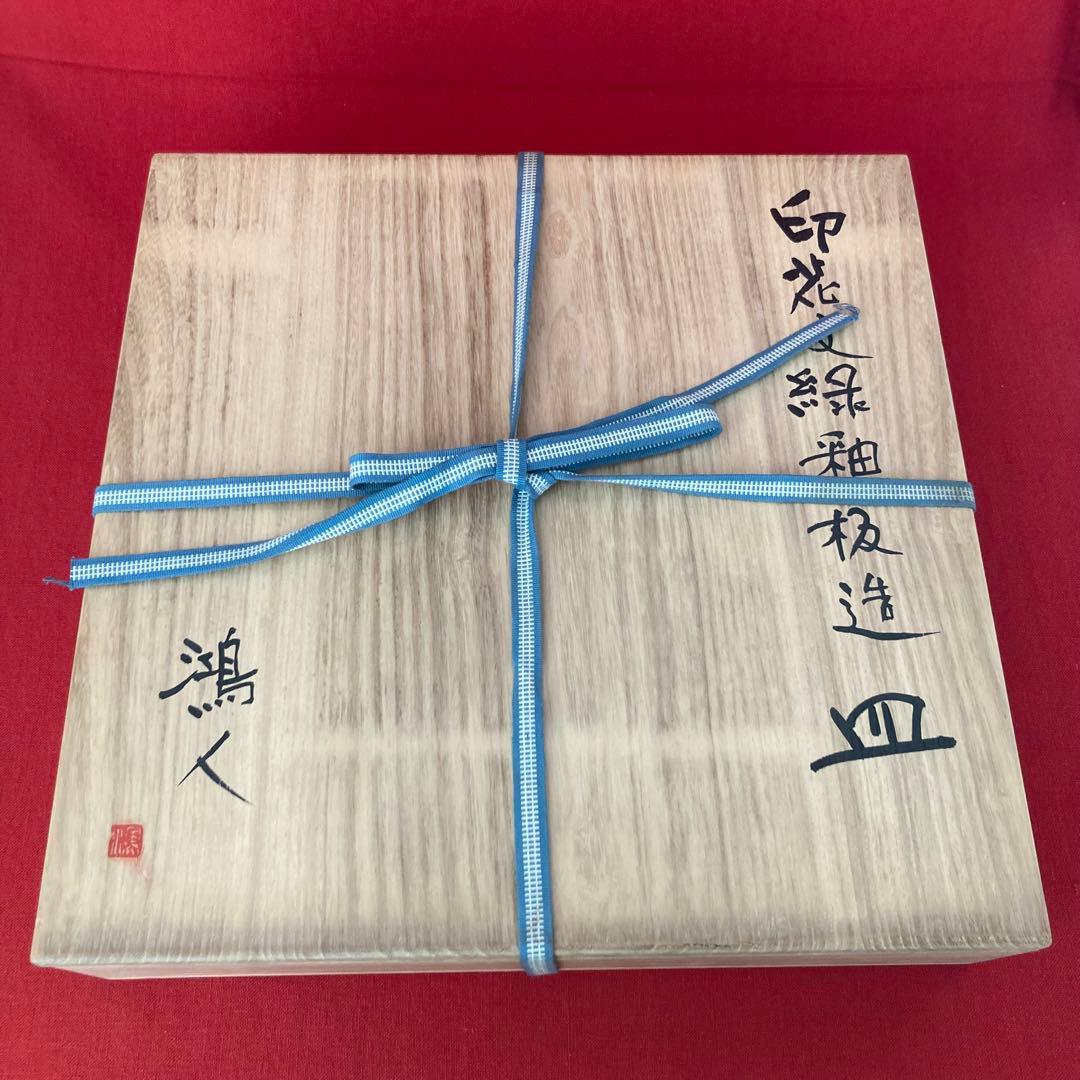 印花文緑釉板造皿
鴻人